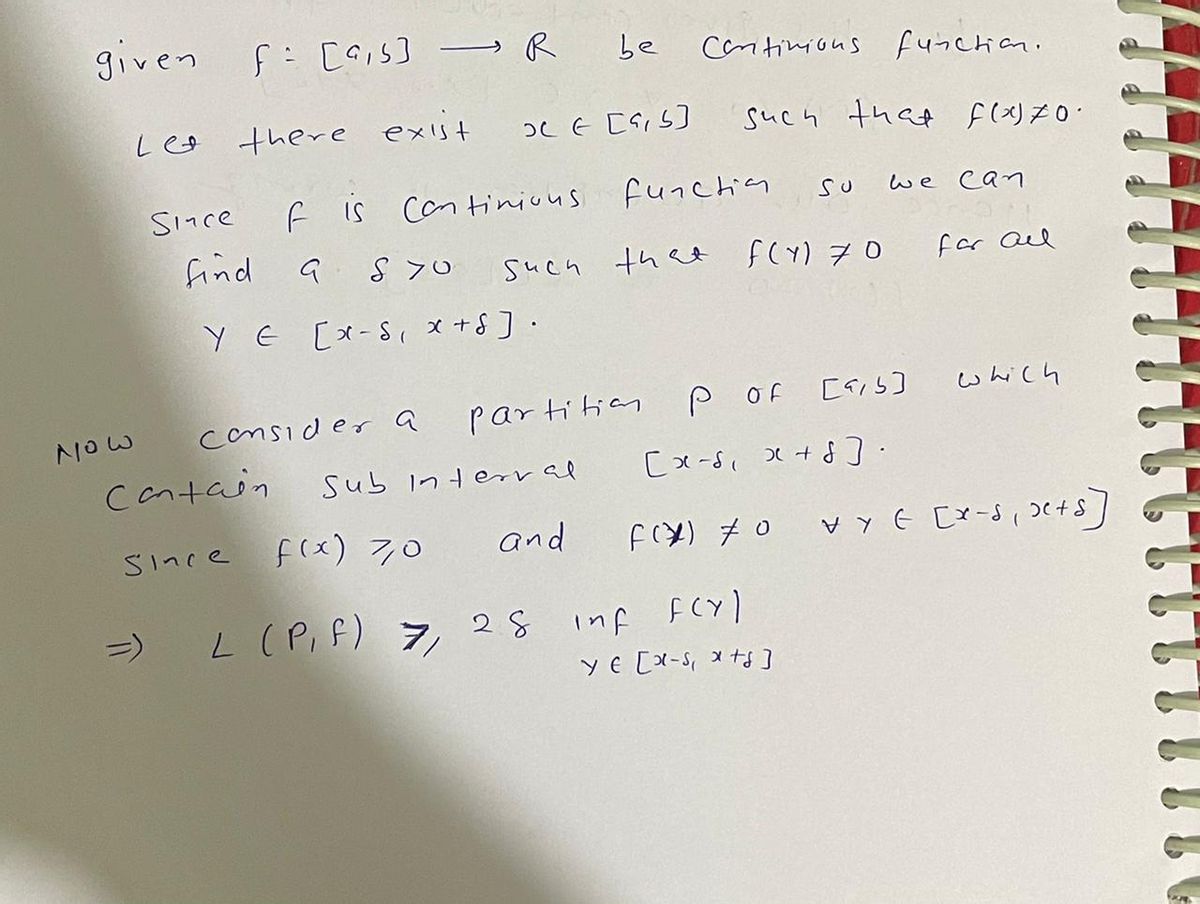 given f : [a,b] → R be continious function.
Let there exist x ∈ [a,b] such that f(x) ≠ 0.
Since f is continious function so we can
find a δ > 0 such that f(y) ≠ 0 for all
y ∈ [x-δ, x+δ].
Now consider a partition P of [a,b] which
contain sub interval [x-δ, x+δ].
Since f(x) ⩾ 0 and f(y) ≠ 0 ∀ y ∈ [x-δ, x+δ]
⇒ L(P,f) ⩾ 2δ inf f(y)
y ∈ [x-δ, x+δ]